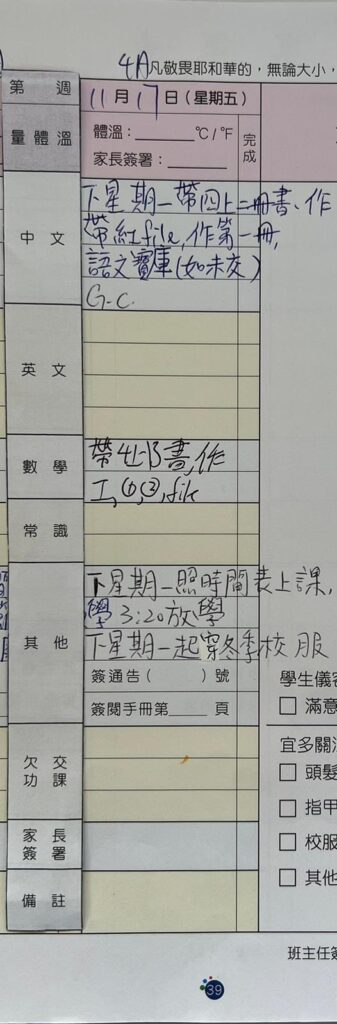 4A凡敬畏耶和華的，無論大小，
第 週
11月17日(星期五)
量體溫
體溫：______°C/°F
家長簽署：______
完成
中文
下星期一帶四上二冊書、作
帶紅file,作第一冊,
語文寶庫(如未交)
G.C.
英文
數學
帶4上B書,作
工,①,②,file
常識
其他
下星期一照時間表上課,
學3:20放學
下星期一起穿冬季校服
簽通告( )號
簽閱手冊第____頁
學生儀容
滿意
欠交功課
宜多關注
頭髮
指甲
校服
其他
家長簽署
備註
班主任簽
39